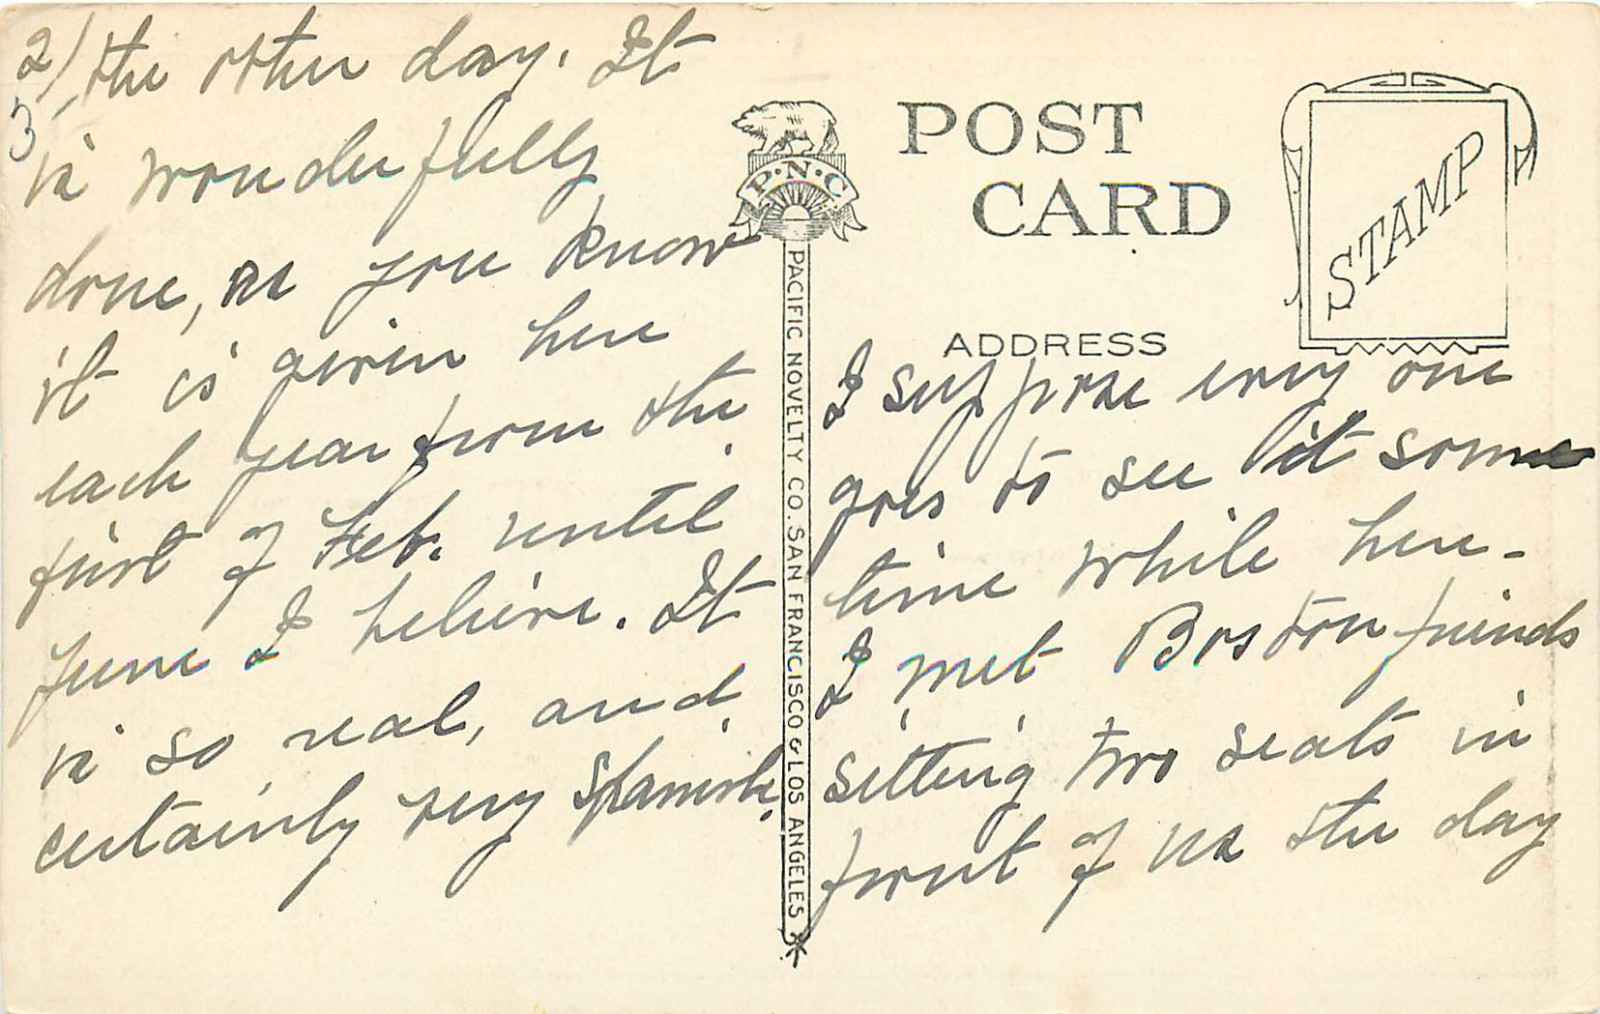 2/
3
the other day. It
is wonderfully
done, as you know
it is given here
each year from the
first of Feb. until
June I believe. It
is so real, and
certainly very Spanish.
P·N·C
PACIFIC NOVELTY CO. SAN FRANCISCO & LOS ANGELES
POST
CARD
STAMP
ADDRESS
I suppose every one
goes to see it some
time while here -
I met Boston friends
sitting two seats in
front of us the day